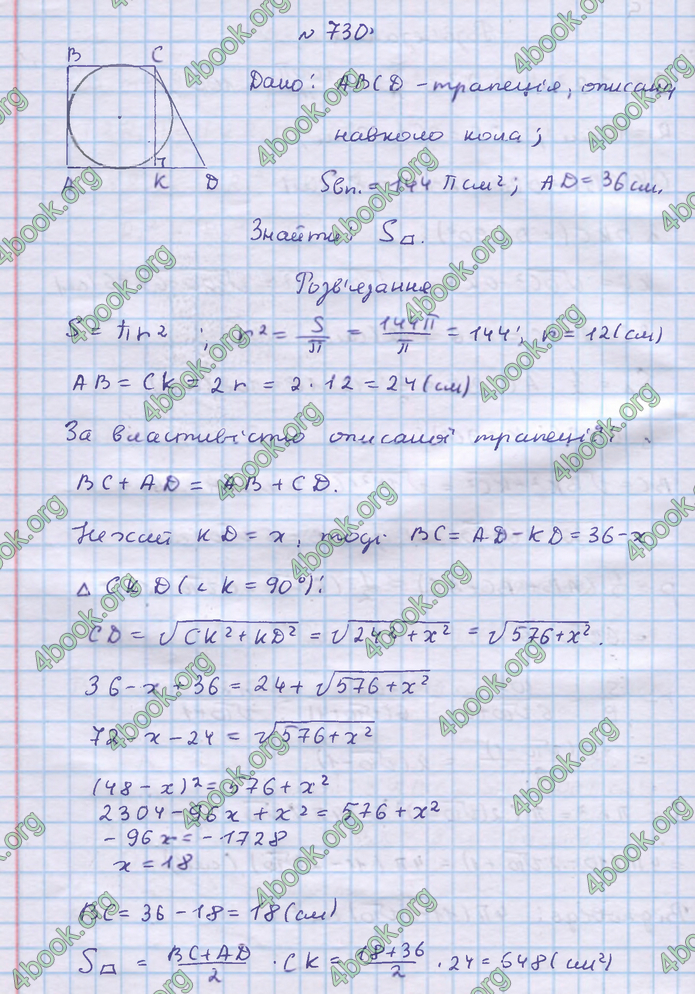 № 730.
B C
A K D
Дано: ABCD – трапеція, описана
навколо кола;
Sвп. = 144 π см²; AD = 36 см.
Знайти: S⏢.
Розв'язання
S = πr²; r² = S/π = 144π/π = 144; r = 12 (см)
AB = CK = 2r = 2 · 12 = 24 (см)
За властивістю описаної трапеції:
BC + AD = AB + CD.
Нехай KD = x, тоді BC = AD – KD = 36 – x
△ CKD (∠K = 90°):
CD = √(CK² + KD²) = √(24² + x²) = √(576 + x²).
36 – x + 36 = 24 + √(576 + x²)
72 – x – 24 = √(576 + x²)
(48 – x)² = 576 + x²
2304 – 96x + x² = 576 + x²
– 96x = – 1728
x = 18
BC = 36 – 18 = 18 (см)
S⏢ = (BC + AD)/2 · CK = (18 + 36)/2 · 24 = 648 (см²)
4book.org